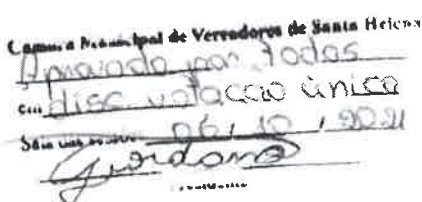 Camara Municipal de Vereadores de Santa Helena
Aprovado por todos
em disc votaccio única
Sala das 06, 10, 2021